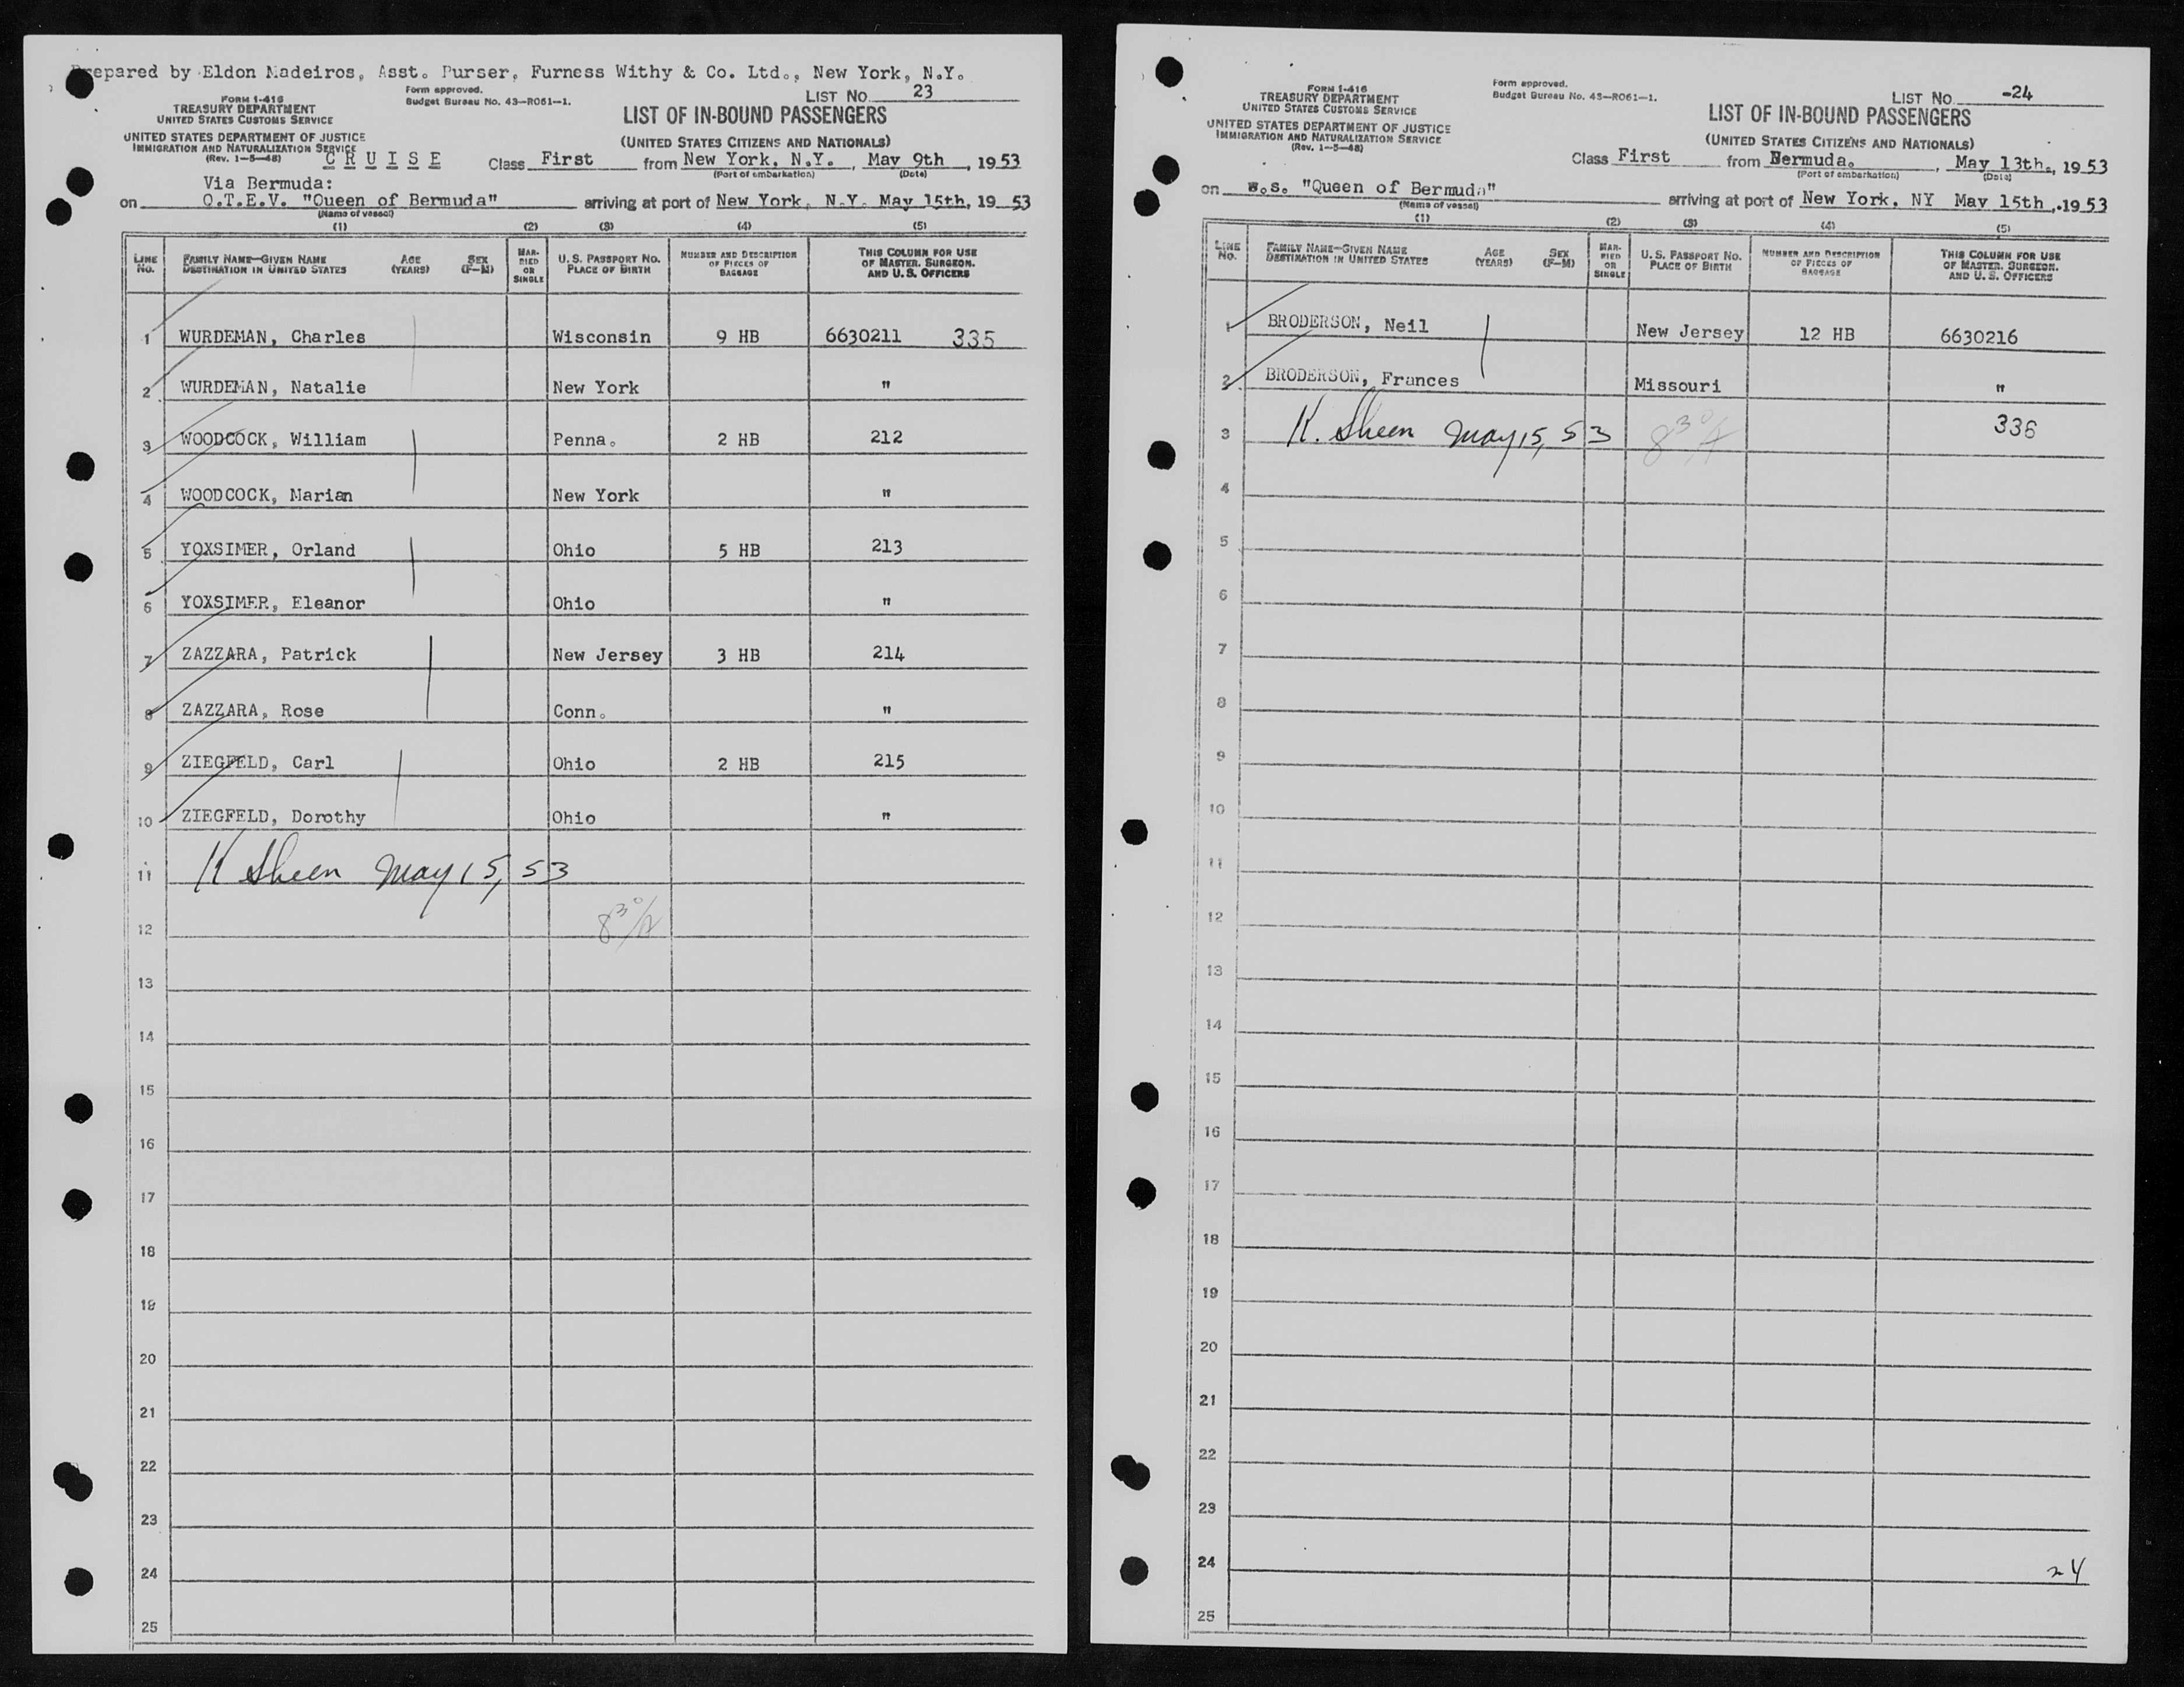 Prepared by Eldon Madeiros, Asst. Purser, Furness Withy & Co. Ltd., New York, N.Y.
FORM I-416
TREASURY DEPARTMENT
UNITED STATES CUSTOMS SERVICE
UNITED STATES DEPARTMENT OF JUSTICE
IMMIGRATION AND NATURALIZATION SERVICE
(Rev. 1-5-48)
Form approved.
Budget Bureau No. 43-R061-1.
LIST NO. 23
LIST OF IN-BOUND PASSENGERS
(UNITED STATES CITIZENS AND NATIONALS)
C R U I S E
Class First from New York, N.Y., May 9th, 1953
(Port of embarkation) (Date)
Via Bermuda:
on Q.T.E.V. "Queen of Bermuda" arriving at port of New York, N.Y. May 15th, 1953
(Name of vessel)
(1) (2) (3) (4) (5)
LINE NO. FAMILY NAME—GIVEN NAME DESTINATION IN UNITED STATES AGE (YEARS) SEX (F-M) MARRIED OR SINGLE U. S. PASSPORT NO. PLACE OF BIRTH NUMBER AND DESCRIPTION OF PIECES OF BAGGAGE THIS COLUMN FOR USE OF MASTER, SURGEON, AND U. S. OFFICERS
1 WURDEMAN, Charles Wisconsin 9 HB 6630211 335
2 WURDEMAN, Natalie New York "
3 WOODCOCK, William Penna. 2 HB 212
4 WOODCOCK, Marian New York "
5 YOXSIMER, Orland Ohio 5 HB 213
6 YOXSIMER, Eleanor Ohio "
7 ZAZZARA, Patrick New Jersey 3 HB 214
8 ZAZZARA, Rose Conn. "
9 ZIEGFELD, Carl Ohio 2 HB 215
10 ZIEGFELD, Dorothy Ohio "
11 K Sheen May 15, 53
12
13
14
15
16
17
18
19
20
21
22
23
24
25
FORM I-416
TREASURY DEPARTMENT
UNITED STATES CUSTOMS SERVICE
UNITED STATES DEPARTMENT OF JUSTICE
IMMIGRATION AND NATURALIZATION SERVICE
(Rev. 1-5-48)
Form approved.
Budget Bureau No. 43-R061-1.
LIST NO. -24
LIST OF IN-BOUND PASSENGERS
(UNITED STATES CITIZENS AND NATIONALS)
Class First from Bermuda. , May 13th., 1953
(Port of embarkation) (Date)
on s.s. "Queen of Bermuda" arriving at port of New York, NY May 15th, 1953
(Name of vessel)
(1) (2) (3) (4) (5)
LINE NO. FAMILY NAME—GIVEN NAME DESTINATION IN UNITED STATES AGE (YEARS) SEX (F-M) MARRIED OR SINGLE U. S. PASSPORT NO. PLACE OF BIRTH NUMBER AND DESCRIPTION OF PIECES OF BAGGAGE THIS COLUMN FOR USE OF MASTER, SURGEON, AND U. S. OFFICERS
1 BRODERSON, Neil New Jersey 12 HB 6630216
2 BRODERSON, Frances Missouri "
3 K. Sheen May 15, 53 336
4
5
6
7
8
9
10
11
12
13
14
15
16
17
18
19
20
21
22
23
24 24
25